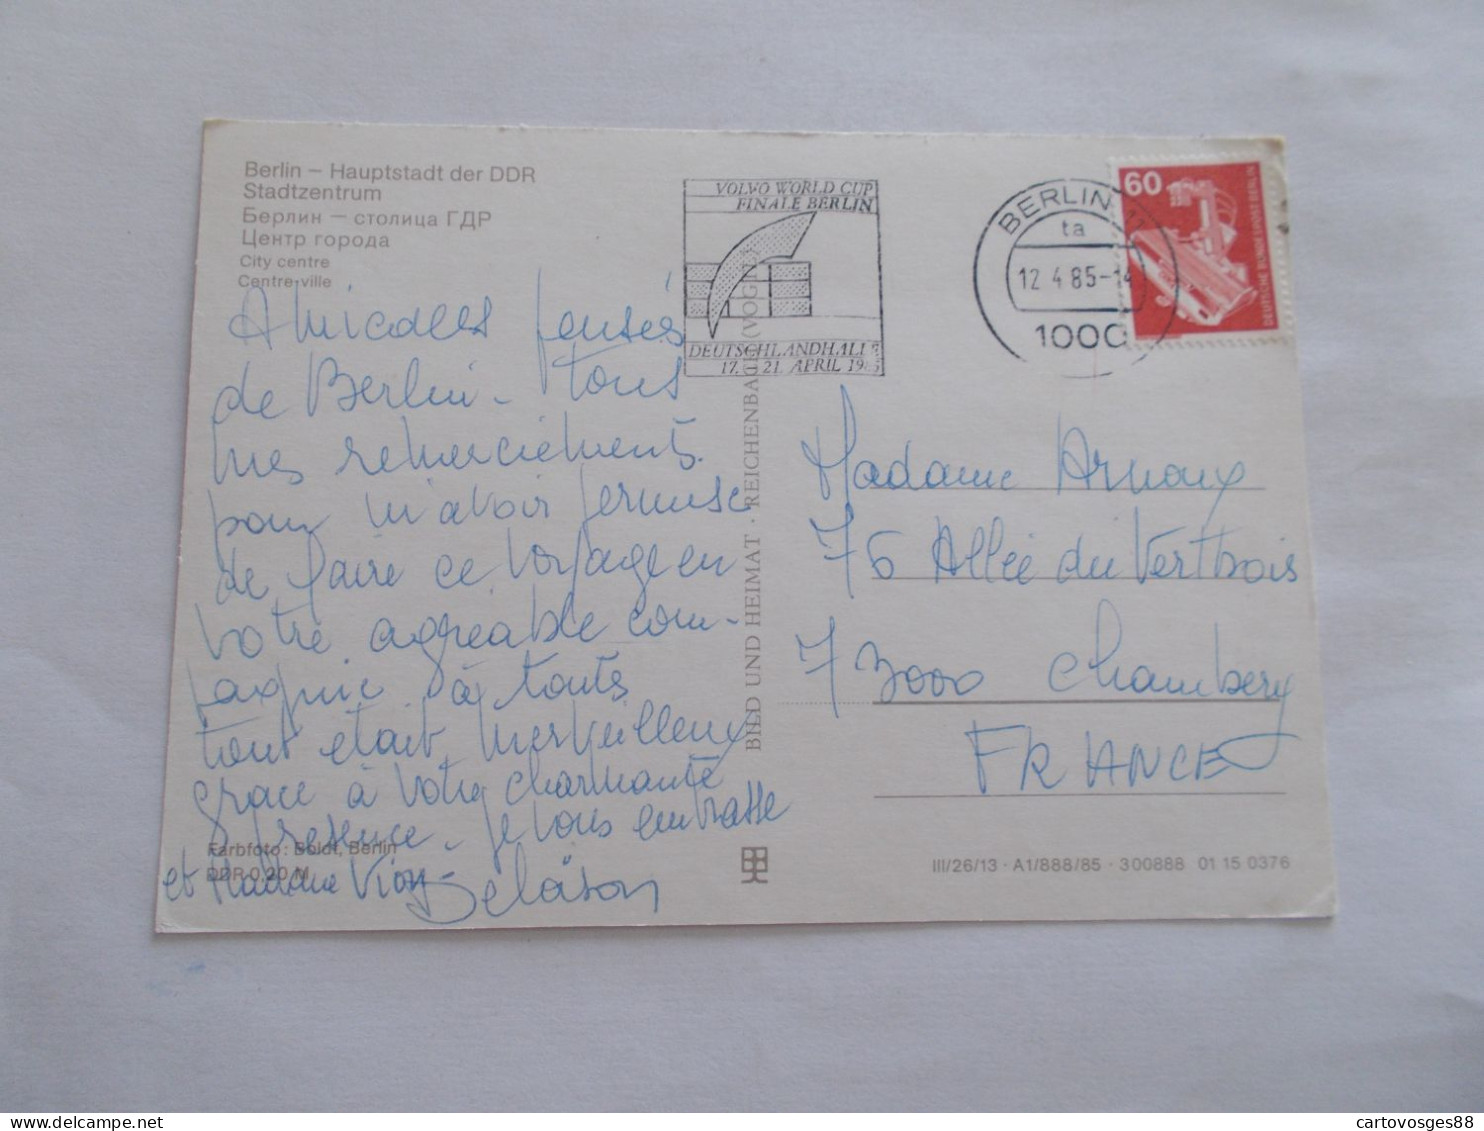 Berlin – Hauptstadt der DDR
Stadtzentrum
Берлин – столица ГДР
Центр города
City centre
Centre-ville
VOLVO WORLD CUP
FINALE BERLIN
DEUTSCHLANDHALLE
17. 21. APRIL
BERLIN
ta
12.4.85-14
1000
60
DEUTSCHE BUNDESPOST BERLIN
Amicales pensés
de Berlin - tous
mes remerciements
pour m'avoir permise
de faire ce voyage en
votre agréable com-
pagnie à touts
tout était merveilleux
grace à votre charmante
presence - je vous embrasse
et Madame
BILD UND HEIMAT · REICHENBACH (VOGTL)
Madame Arnaux
76 Allée du Vert bois
73000 Chambery
FRANCE
Farbfoto: Boldt, Berlin
DDR 0,20 M
III/26/13 · A1/888/85 · 300888 01 15 0376
cartovosges88